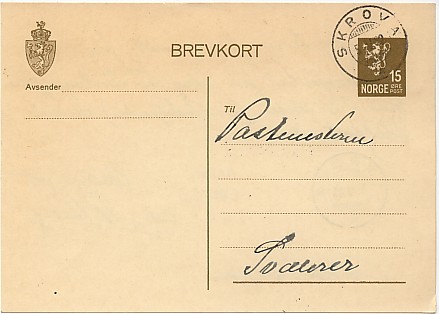 BREVKORT
SKROVA
15
NORGE ØRE POST
Avsender
Til
Postmesteren
Svolvær